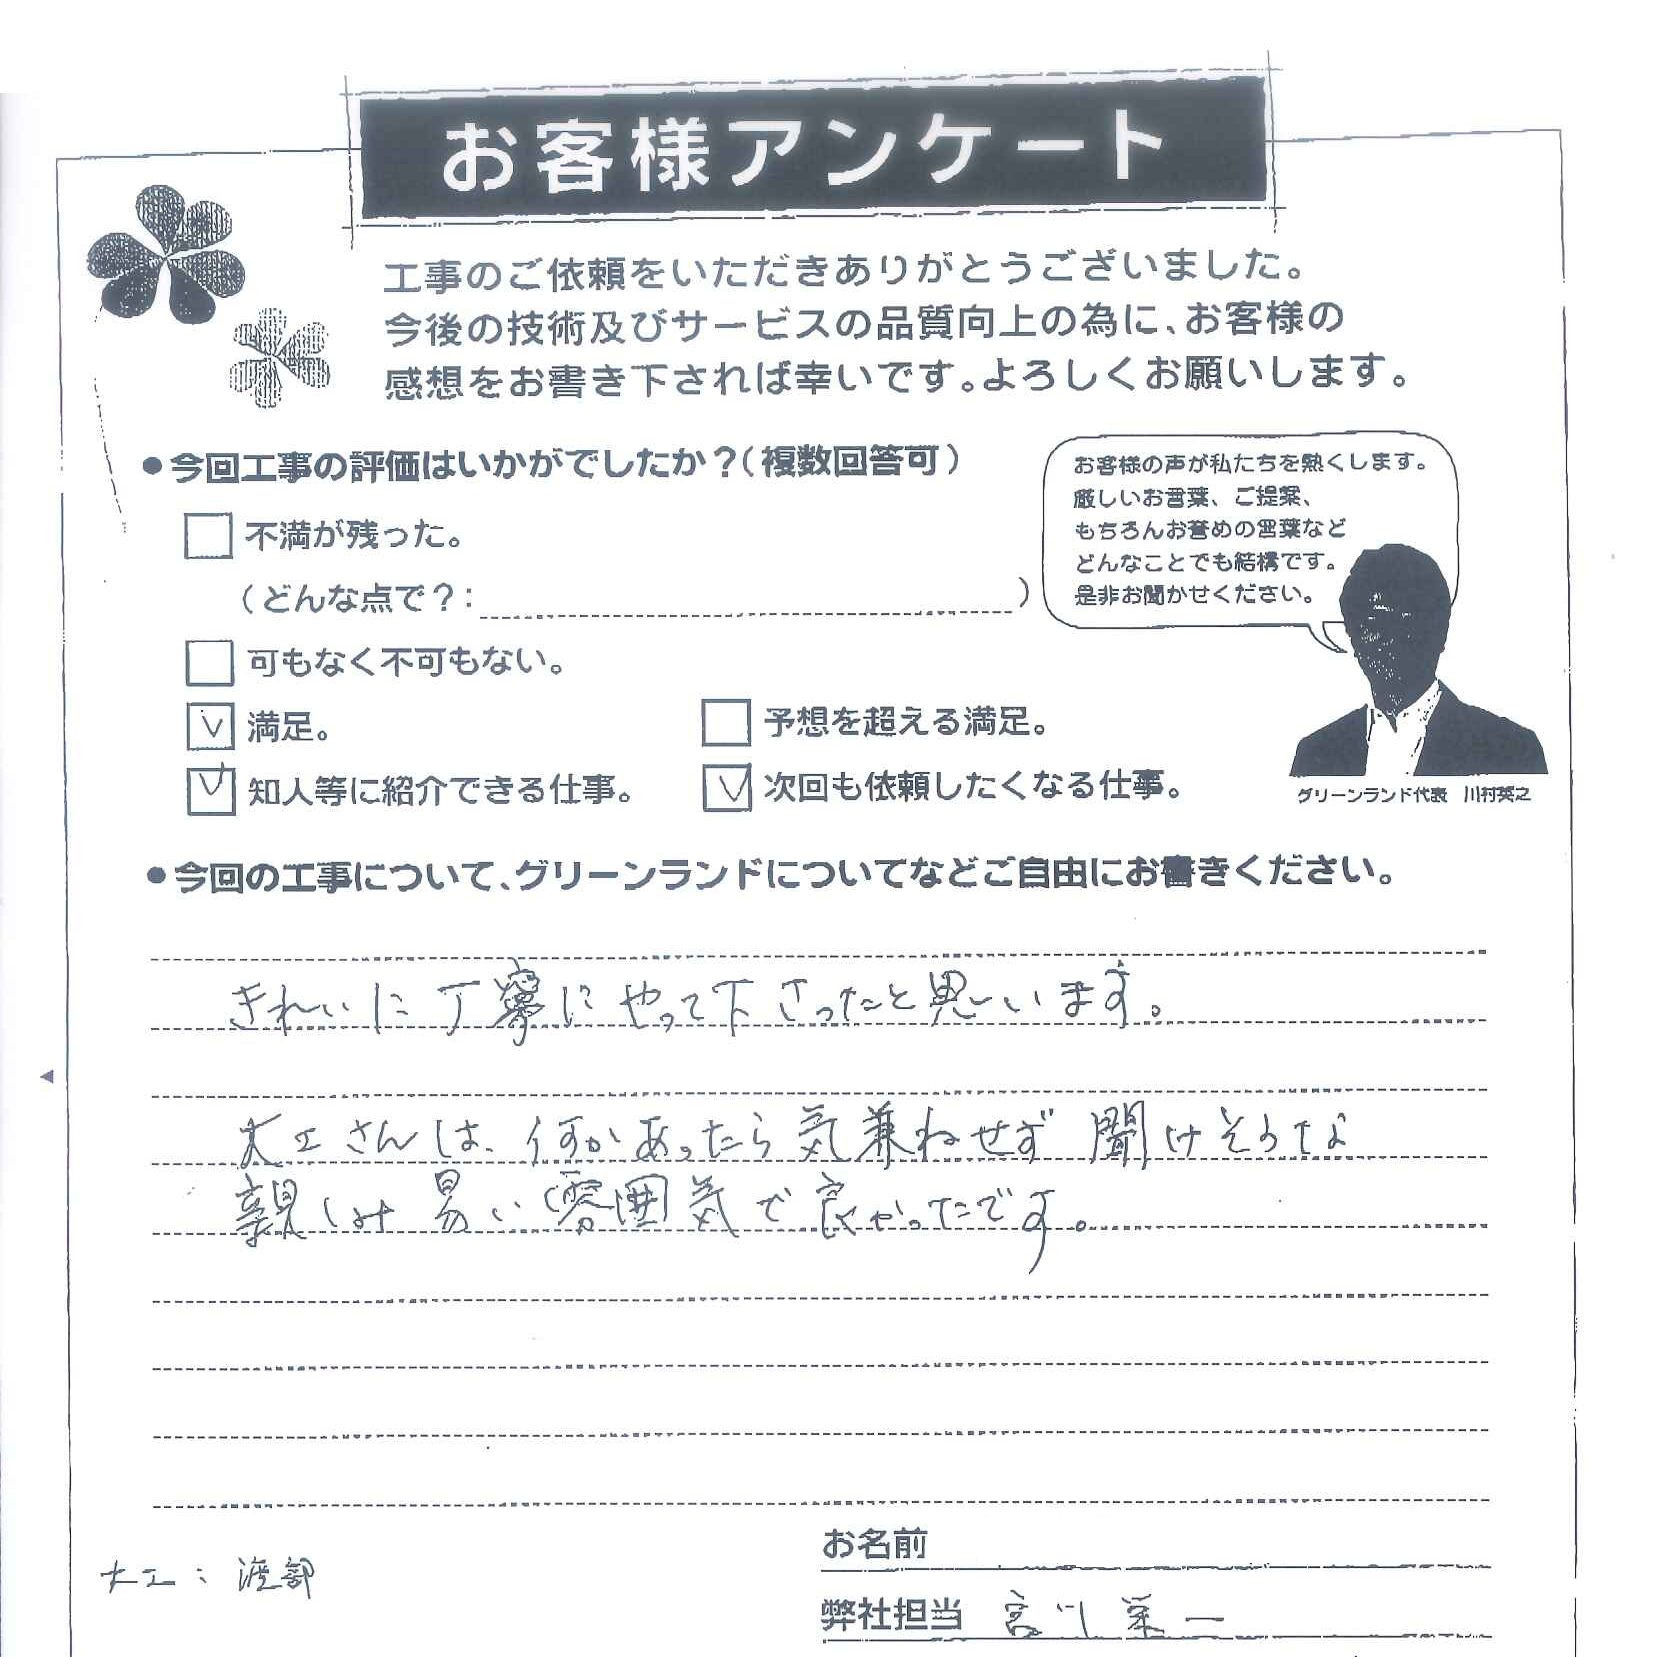 お客様アンケート
工事のご依頼をいただきありがとうございました。
今後の技術及びサービスの品質向上の為に、お客様の
感想をお書き下されば幸いです。よろしくお願いします。
●今回工事の評価はいかがでしたか？(複数回答可)
不満が残った。
(どんな点で？: )
可もなく不可もない。
満足。
予想を超える満足。
知人等に紹介できる仕事。
次回も依頼したくなる仕事。
お客様の声が私たちを熱くします。
厳しいお言葉、ご提案、
もちろんお誉めの言葉など
どんなことでも結構です。
是非お聞かせください。
グリーンランド代表 川村英之
●今回の工事について、グリーンランドについてなどご自由にお書きください。
きれいに丁寧にやって下さったと思います。
大工さんは、何かあったら気兼ねせず聞けそうな
親しみ易い雰囲気で良かったです。
大工：渡部
お名前
弊社担当 宮川栄一